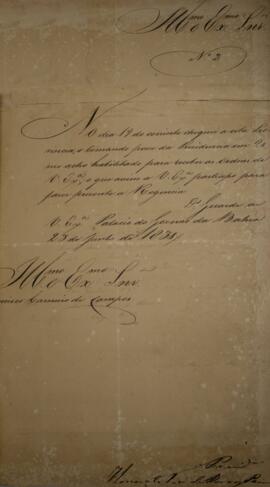 Illmo Exmo Snr
Nº 2
No dia 19 do corrente cheguei a esta Pro
vincia, e tomando posse da Presidencia
me acho habilitado para receber as ordens de
V. Exª, o que assim a V. Exª participo para
fazer presente a Regencia
Ds Guarde a
V. Exª Palacio do Governo da Bahia
25 de Junho de 1831
Illmo Exmo Snr
Carneiro de Campos